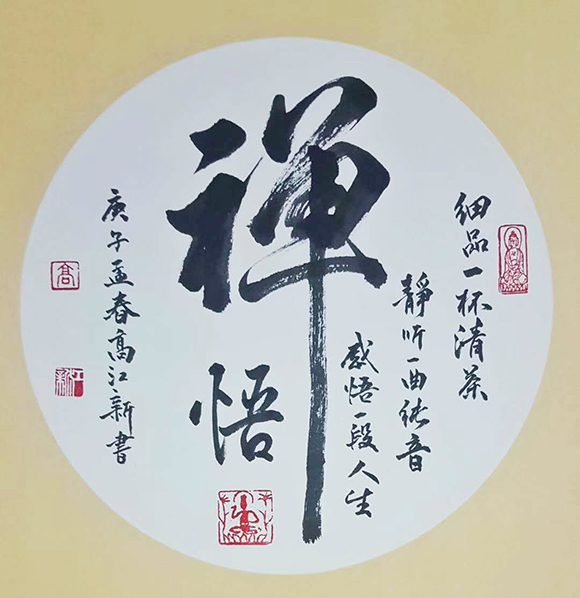 细品一杯清茶
靜听一曲佛音
感悟一段人生
禪悟
庚子孟春高江新書
高
江新